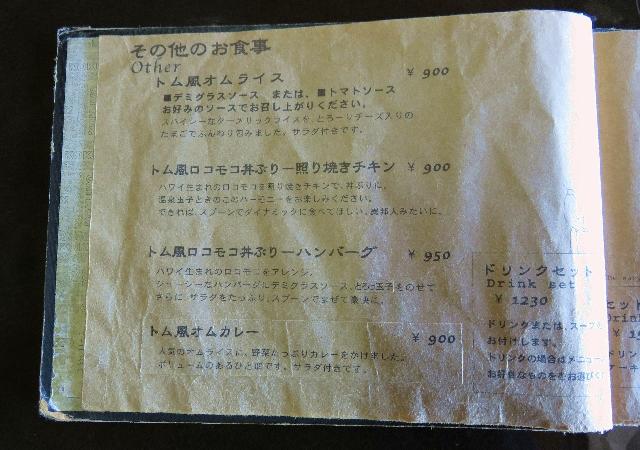 その他のお食事
Other
トム風オムライス ¥ 900
■デミグラスソース または、■トマトソース
お好みのソースでお召し上がりください。
スパイシーなターメリックライスを、とろーりチーズ入りの
たまごでふんわり包みました。サラダ付きです。
トム風ロコモコ丼ぶりー照り焼きチキン ¥ 900
ハワイ生まれのロコモコを照り焼きチキンで、丼ぶりに。
温泉玉子ときのこのハーモニーをお楽しみください。
できれば、スプーンでダイナミックに食べてほしい、異邦人みたいに。
トム風ロコモコ丼ぶりーハンバーグ ¥ 950
ハワイ生まれのロコモコをアレンジ。
ジューシーなハンバーグにデミグラスソース、とろっ玉子をのせて
さらに、サラダをたっぷり。スプーンでまぜて豪快に。
トム風オムカレー ¥ 900
人気のオムライスに、野菜たっぷりカレーをかけました。
ボリュームのあるひと皿です。サラダ付きです。
ドリンクセット
Drink set
¥ 1230
ドリンクまたは、スープを
お付けします。
ドリンクの場合はメニュー
お好きなものをお選びく